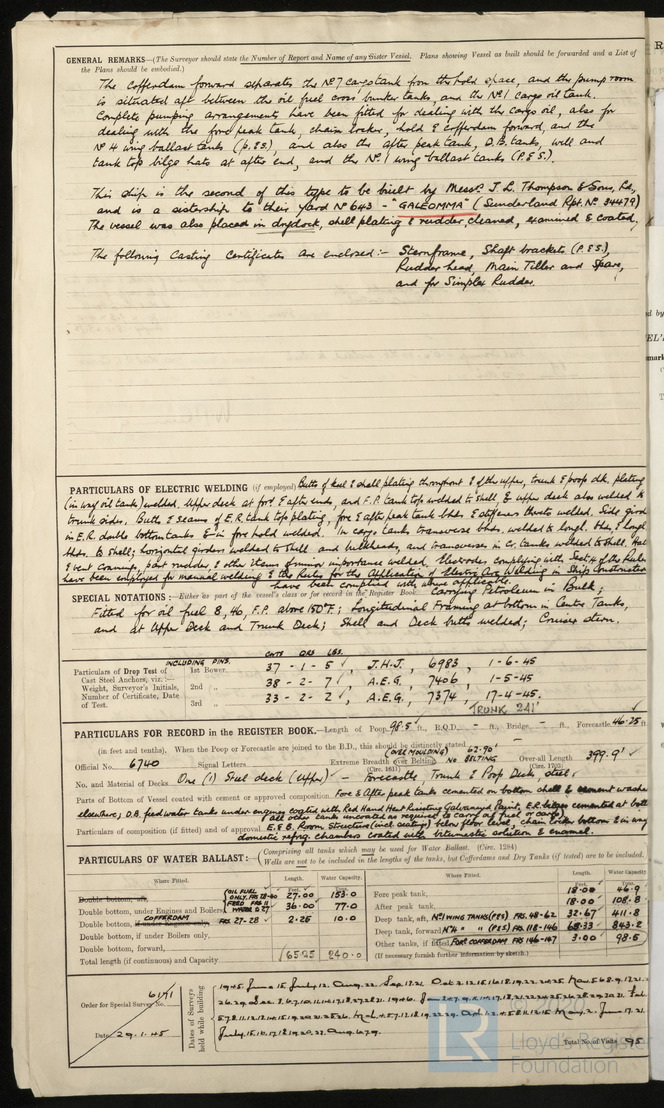 GENERAL REMARKS—(The Surveyor should state the Number of Report and Name of any Sister Vessel. Plans showing Vessel as built should be forwarded and a List of
the Plans should be embodied.)
The cofferdam forward separates the No 7 cargo tank from the hold space, and the pump room
is situated aft between the oil fuel cross bunker tanks, and the No 1 cargo oil tank.
Complete pumping arrangements have been fitted for dealing with the cargo oil, also for
dealing with the fore peak tank, chain locker, hold & cofferdam forward, and the
No 4 wing ballast tanks (P.&S.), and also the after peak tank, D.B. tanks, well and
tank top bilge hats at after end, and the No. 1 wing ballast tanks (P.&S.).
This ship is the second of this type to be built by Messrs J. L. Thompson & Sons, Ld,
and is a sistership to their Yard No 643 - "GALEOMMA" (Sunderland Rpt. No 34479)
The vessel was also placed in drydock, shell plating & rudder cleaned, examined & coated,
The following Casting Certificates are enclosed:- Sternframe, Shaft brackets (P.&S),
Rudder head, Main Tiller and Spare,
and for Simplex Rudder.
PARTICULARS OF ELECTRIC WELDING (if employed) Butts of keel & shell plating throughout & of the upper, trunk & poop dk. plating
(in way oil tank) welded. Upper deck at ford & after ends, and F.P. tank top welded to shell, & upper deck also welded to
trunk sides. Butts & seams of E.R. tank top plating, fore & after peak tank bhds. & stiffeners thereto welded. Side girds
in E.R. double bottom tanks & in fore hold welded. In cargo tanks transverse bhds. welded to longl. bhds, & longl.
bhds. to shell; horizontal girders welded to shell and bulkheads, and transverses in Cr. tanks welded to shell.
& vent coamings, part rudder, & other items of minor importance welded. Electrodes, complying with Sect. 4 of the Rules
have been employed for manual welding & the Rules for the Application of Electric Arc Welding in Ship Construction
have been complied with, where applicable.
SPECIAL NOTATIONS:—Either as part of the vessel's class or for record in the Register Book. Carrying Petroleum in Bulk;
Fitted for oil fuel 8, 46, F.P. above 150°F; Longitudinal Framing at bottom in Centre Tanks,
and at Upper Deck and Trunk Deck; Shell and Deck butts welded; Cruiser stern.
INCLUDING PINS. CWTS QRS LBS.
Particulars of Drop Test of Cast Steel Anchors, viz.:— Weight, Surveyor's Initials, Number of Certificate, Date of Test.
1st Bower 37 - 1 - 5 ✓, J.H.J., 6983, 1-6-45
2nd ,, 38 - 2 - 7 ✓, A.E.G., 7406, 1-5-45
3rd ,, 33 - 2 - 2 ✓, A.E.G., 7374, 17-4-45.
TRUNK 241'
PARTICULARS FOR RECORD in the REGISTER BOOK.—Length of Poop 98.5 ft., B.Q.D. - ft., Bridge - ft., Forecastle 46.25 ft.
(in feet and tenths). When the Poop or Forecastle are joined to the B.D., this should be distinctly stated
(OVER MOULDING) 62.90'
Official No. 6740 Signal Letters Extreme Breadth over Belting NO BELTING Over-all Length 399.9' ✓
(Circ. 1611) (Circ. 1703)
No. and Material of Decks One (1) Steel deck (upper) ✓ - Forecastle, Trunk & Poop Decks, steel.
Parts of Bottom of Vessel coated with cement or approved composition Fore & After peak tanks cemented on bottom shell & cement washed
elsewhere; D.B. feed water tanks under engines coated with Red Hand Heat Resisting Galvanoyd Paint, E.R. bilges cemented at bott
(all other tanks uncoated as required to carry oil fuel or cargo)
Particulars of composition (if fitted) and of approval E. & B. Room Structure (incl. seatings) below floor level, chain locker bottom & in way
domestic refrig. chambers coated with bitumastic solution & enamel.
PARTICULARS OF WATER BALLAST:—(Comprising all tanks which may be used for Water Ballast. (Circ. 1284)
Wells are not to be included in the lengths of the tanks, but Cofferdams and Dry Tanks (if tested) are to be included.
Where Fitted. Length. Water Capacity. Where Fitted. Length. Water Capacity
Double bottom, aft, OIL FUEL ONLY, FRS 28-40 27.00 153.0
Double bottom, under Engines and Boilers FEED FRS 11 WHERE G 27 36.00 77.0
Double bottom, if under Engines only, COFFERDAM FRS 27-28 ✓ 2.25 10.0
Double bottom, if under Boilers only,
Double bottom, forward,
Total length (if continuous) and Capacity 65.25 240.0
Fore peak tank, 18.00 46.9
After peak tank, 18.00 108.8
Deep tank, aft, No 1 WING TANKS (P&S) FRS. 48-62 32.67 411.8
Deep tank, forward, No 4 " " (P&S) FRS 118-146 65.33 843.2
Other tanks, if fitted, FORD COFFERDAM FRS 146-147 3.00 98.5
(If necessary furnish further information by sketch.)
Order for Special Survey No. 6171
Date 29.1.45
Dates of Surveys held while building
Total No. of Visits 95
LR
Lloyd's Register
Foundation